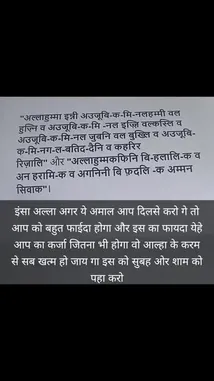 "अल्लाहुम्मा इन्नी अउजूबि-क-मिनलहम्मी वल
हुज्नि व अउजूबि-क-मि -नल इज्ज़ि वल्कस्लि व
अउजूबि-क-मि-नल जुबनि वल बुख्लि व अउजूबि-
क-मि-नग-ल-बतिद-दैनि व कहरिर
रिज़ालि" और "अल्लाहुम्मकफिनि बि-हलालि-क व
अन हरामि-क व अगनिनी बि फ़दलि -क अम्मन
सिवाक"।
इंसा अल्ला अगर ये अमाल आप दिलसे करो गे तो
आप को बहुत फाईदा होगा और इस का फायदा येहे
आप का कर्जा जितना भी होगा वो आल्हा के करम
से सब खत्म हो जाय गा इस को सुबह ओर शाम को
पहा करो